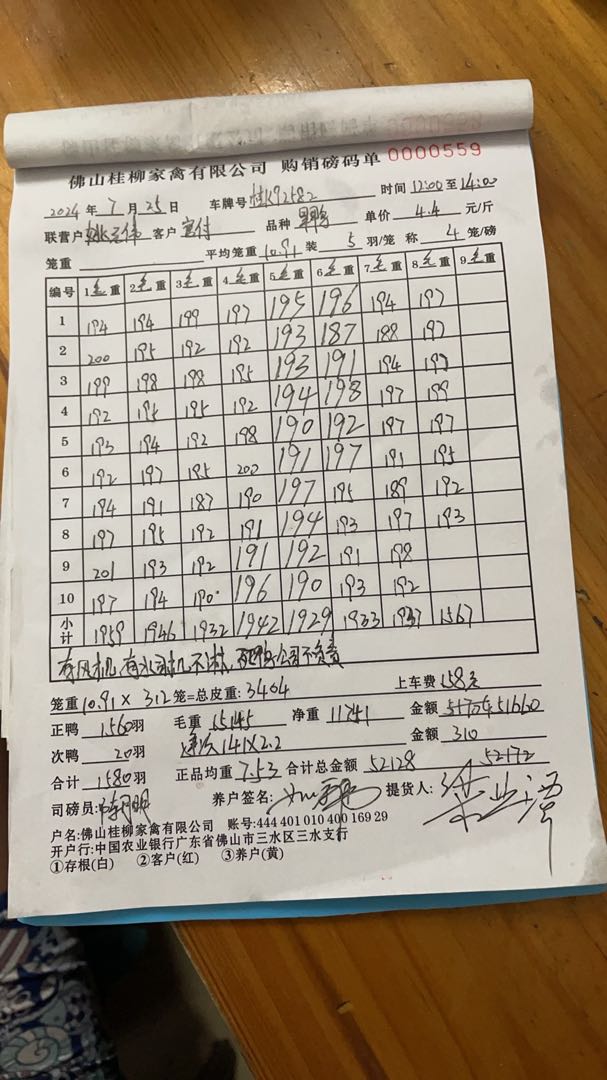 佛山桂柳家禽有限公司 购销磅码单 0000559
2024年7月25日 车牌号 桂K92582 时间 12:00至14:00
联营户 客户 品种 单价 4.4 元/斤
笼重 平均笼重 10.91 装 5 羽/笼 称 4 笼/磅
编号 1毛重 2毛重 3毛重 4毛重 5毛重 6毛重 7毛重 8毛重 9毛重
1 194 194 199 197 195 196 194 197
2 200 195 192 192 193 187 188 197
3 199 198 198 195 193 191 194 197
4 192 195 195 192 194 198 197 199
5 193 194 192 198 190 192 197 197
6 192 197 195 200 191 197 191 195
7 194 191 187 190 197 195 189 192
8 197 195 192 191 194 193 197 193
9 201 193 192 191 192 191 198
10 197 194 190 196 190 193 192
小计 1959 1946 1932 1942 1929 1933 1937 1567
有风机,有水 司机不 公司不负责
笼重 10.91 × 312 笼=总皮重: 3404 上车费 158元
正鸭 1560羽 毛重 15145 净重 11741 金额 51660
次鸭 20羽 141×2.2 金额 310
合计 1580羽 正品均重 7.53 合计总金额 52128 52172
司磅员: 养户签名: 提货人:
户名:佛山桂柳家禽有限公司 账号:444 401 010 400 169 29
开户行:中国农业银行广东省佛山市三水区三水支行
①存根(白) ②客户(红) ③养户(黄)